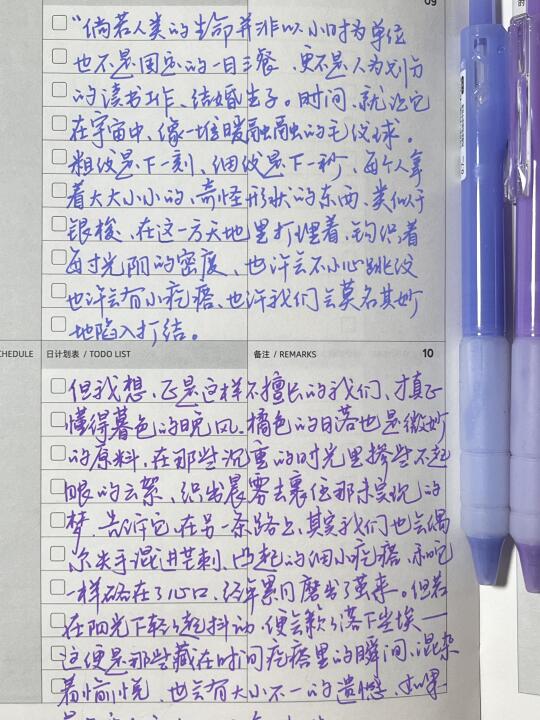 09
“倘若人类的生命并非以小时为单位
也不是固定的一日三餐、更不是人为划分
的读书工作、结婚生子。时间，就让它
在宇宙中，像一堆暖融融的毛线球。
粗纹是下一刻、细纹是下一秒，每个人拿
着大大小小的，奇怪形状的东西，类似于
银梭，在这一方天地里打理着，钩织着
每寸光阴的密度，也许会不小心跳纹
也许会有小疙瘩、也许我们会莫名其妙
地陷入打结。
CHEDULE
日计划表 / TODO LIST
备注 / REMARKS
10
但我想，正是这样不擅长的我们，才真正
懂得暮色的晚风。橘色的日落也是微妙
的原料，在那些沉重的时光里掺些不起
眼的云絮，织出晨雾去裹住那未实现的
梦，告诉它，在另一条路上，其实我们也会偶
尔失手混进芒刺，凸起的细小疙瘩，和它
一样硌在了心口，经年累月磨出了茧来。但若
在阳光下轻轻起抖动，便会簌簌落下尘埃——
这便是那些藏在时间疙瘩里的瞬间，混杂
着愉悦，也会有大小不一的遗憾，如果